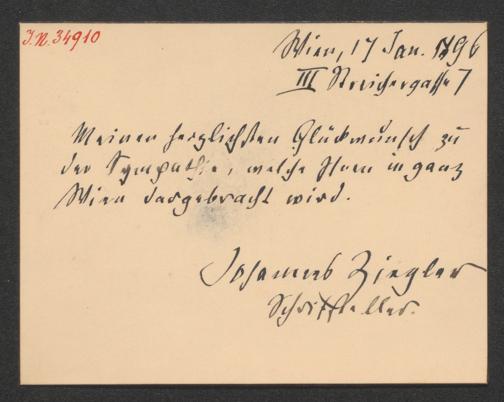 I.N. 34910
Wien, 17 Jan. 1896
III Streichergasse 7
Meinen herzlichsten Glückwunsch zu
der Sympathie, welche Ihnen in ganz
Wien dargebracht wird.
Johannes Ziegler
Schriftsteller.